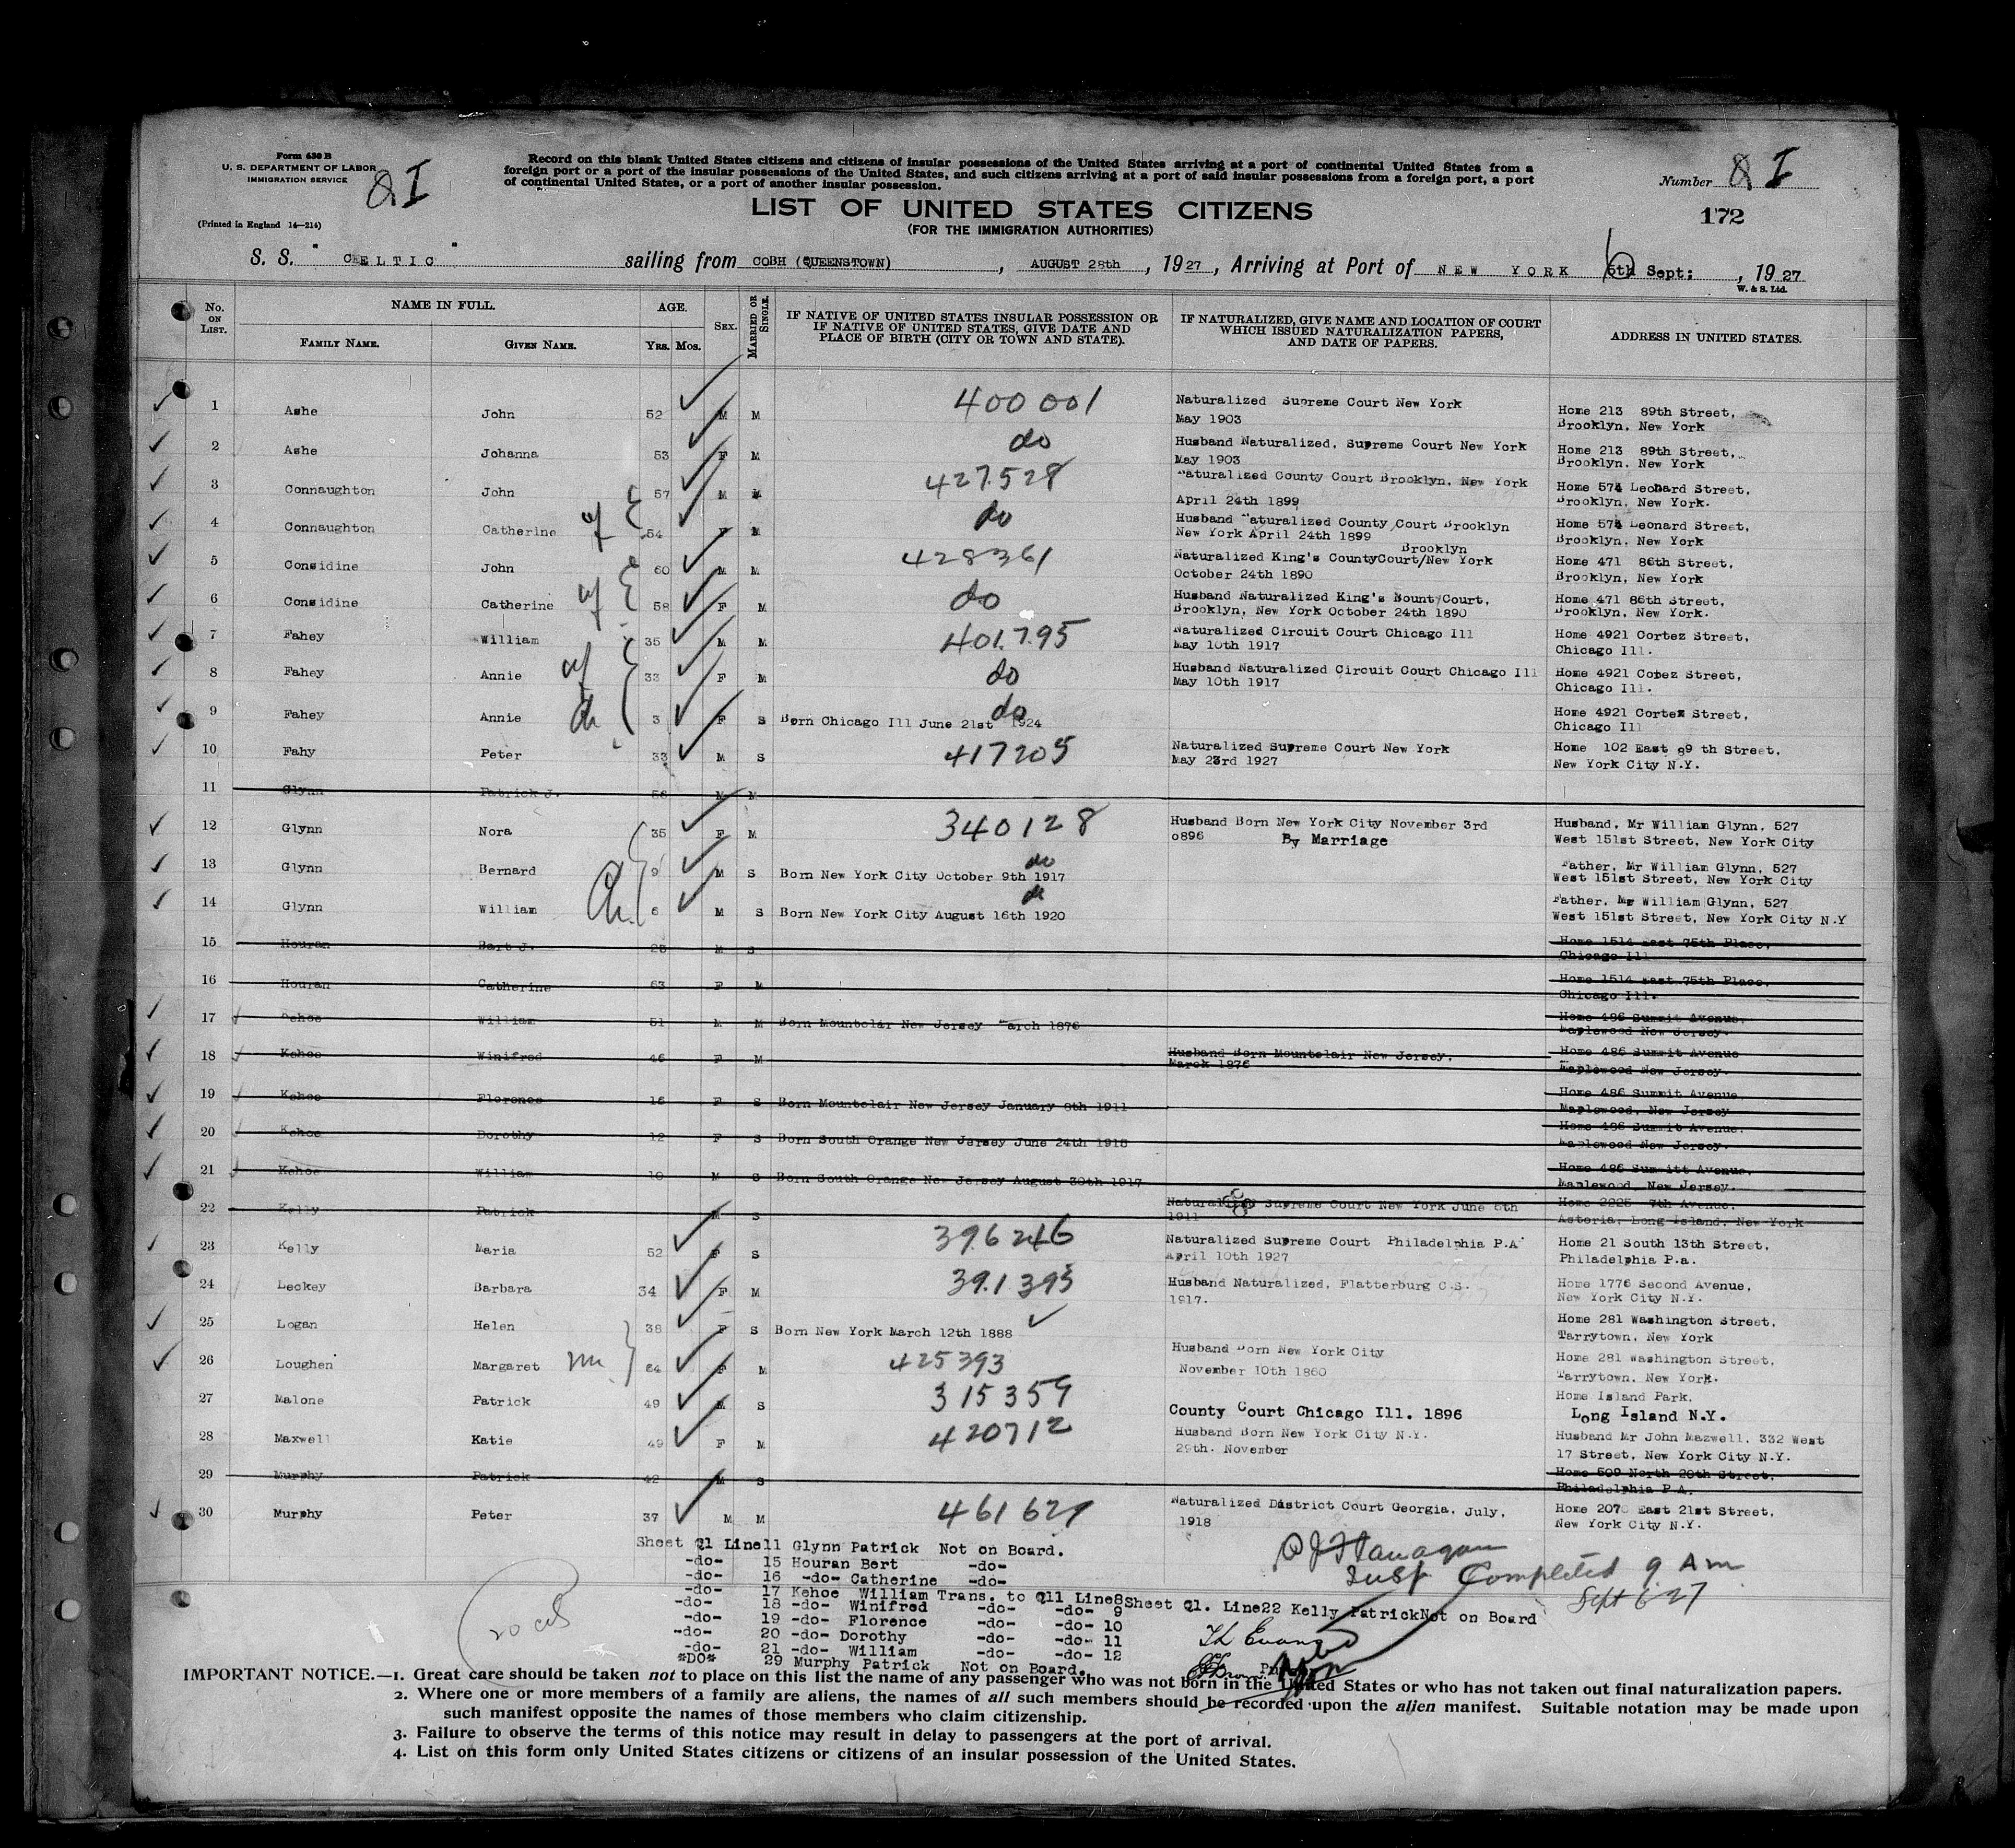 Form 630 B
U. S. DEPARTMENT OF LABOR
IMMIGRATION SERVICE
QI
(Printed in England 14—214)
Record on this blank United States citizens and citizens of insular possessions of the United States arriving at a port of continental United States from a
foreign port or a port of the insular possessions of the United States, and such citizens arriving at a port of said insular possessions from a foreign port, a port
of continental United States, or a port of another insular possession.
Number QI
172
LIST OF UNITED STATES CITIZENS
(FOR THE IMMIGRATION AUTHORITIES)
S. S. "CELTIC" sailing from COBH (QUEENSTOWN), AUGUST 28th, 1927, Arriving at Port of NEW YORK 6 5th Sept:, 1927
W. & S. Ltd.
No. ON LIST. NAME IN FULL. FAMILY NAME. GIVEN NAME. AGE. YRS. MOS. SEX. MARRIED OR SINGLE. IF NATIVE OF UNITED STATES INSULAR POSSESSION OR IF NATIVE OF UNITED STATES, GIVE DATE AND PLACE OF BIRTH (CITY OR TOWN AND STATE). IF NATURALIZED, GIVE NAME AND LOCATION OF COURT WHICH ISSUED NATURALIZATION PAPERS, AND DATE OF PAPERS. ADDRESS IN UNITED STATES.
1 Ashe John 52 M M 400001 Naturalized Supreme Court New York May 1903 Home 213 89th Street, Brooklyn, New York
2 Ashe Johanna 53 F M do Husband Naturalized, Supreme Court New York May 1903 Home 213 89th Street, Brooklyn, New York
3 Connaughton John 57 M M 427528 Naturalized County Court Brooklyn, New York April 24th 1899 Home 574 Leonard Street, Brooklyn, New York.
4 Connaughton Catherine wf 54 F M do Husband Naturalized County Court Brooklyn New York April 24th 1899 Home 574 Leonard Street, Brooklyn, New York
5 Considine John 60 M M 428361 Naturalized King's CountyCourt/New York Brooklyn October 24th 1890 Home 471 86th Street, Brooklyn, New York
6 Considine Catherine wf 58 F M do Husband Naturalized King's Bounty Court, Brooklyn, New York October 24th 1890 Home 471 86th Street, Brooklyn, New York.
7 Fahey William 35 M M 401795 Naturalized Circuit Court Chicago Ill May 10th 1917 Home 4921 Cortez Street, Chicago Ill.
8 Fahey Annie wf 33 F M do Husband Naturalized Circuit Court Chicago Ill May 10th 1917 Home 4921 Cotez Street, Chicago Ill.
9 Fahey Annie ch 3 F S Born Chicago Ill June 21st 1924 do Home 4921 Cortez Street, Chicago Ill
10 Fahy Peter 33 M S 417205 Naturalized Supreme Court New York May 23rd 1927 Home 102 East 89 th Street, New York City N.Y.
11 Glynn Patrick J. 56 M M
12 Glynn Nora 35 F M 340128 Husband Born New York City November 3rd 0896 By Marriage Husband, Mr William Glynn, 527 West 151st Street, New York City
13 Glynn Bernard 9 M S Born New York City October 9th 1917 do Father, Mr William Glynn, 527 West 151st Street, New York City
14 Glynn William Ch. 6 M S Born New York City August 16th 1920 do Father, Mr William Glynn, 527 West 151st Street, New York City N.Y
15 Houran Bart J. 28 M S Home 1514 East 75th Place, Chicago Ill
16 Houran Catherine 63 F M Home 1514 East 75th Place, Chicago Ill.
17 Kehoe William 51 M M Born Mountclair New Jersey March 1876 Home 486 Summit Avenue, Maplewood New Jersey.
18 Kehoe Winifred 46 F M Husband Born Mountclair New Jersey. March 1876 Home 486 Summit Avenue Maplewood New Jersey.
19 Kehoe Florence 16 F S Born Mountclair New Jersey January 8th 1911 Home 486 Summit Avenue, Maplewood, New Jersey
20 Kehoe Dorothy 12 F S Born South Orange New Jersey June 24th 1915 Home 486 Summit Avenue, Maplewood New Jersey.
21 Kehoe William 10 M S Born South Orange New Jersey August 30th 1917 Home 486 Summitt Avenue, Maplewood, New Jersey.
22 Kelly Patrick M S Naturalized Supreme Court New York June 6th 1911 Home 2225 7th Avenue, Astoria, Long Island, New York
23 Kelly Maria 52 F S 396246 Naturalized Supreme Court Philadelphia P.A April 10th 1927 Home 21 South 13th Street, Philadelphia P.a.
24 Leckey Barbara 34 F M 391395 Husband Naturalized, Flatterburg C.S. 1917. Home 1776 Second Avenue, New York City N.Y.
25 Logan Helen 38 F S Born New York March 12th 1888 Home 281 Washington Street, Tarrytown, New York
26 Loughen Margaret m 64 F M 425393 Husband Born New York City November 10th 1860 Home 281 Washington Street, Tarrytown, New York.
27 Malone Patrick 49 M S 315359 County Court Chicago Ill. 1896 Home Island Park, Long Island N.Y.
28 Maxwell Katie 49 F M 420712 Husband Born New York City N.Y. 29th. November Husband Mr John Mazwell, 332 West 17 Street, New York City N.Y.
29 Murphy Patrick 42 M S Home 509 North 20th Street, Philadelphia P.A.
30 Murphy Peter 37 M M 461627 Naturalized District Court Georgia, July, 1918 Home 207 East 21st Street, New York City N.Y.
Sheet Q1 Line11 Glynn Patrick Not on Board.
-do- 15 Houran Bert -do-
-do- 16 -do- Catherine -do-
-do- 17 Kehoe William Trans. to Q11 Line8 Sheet Q1. Line22 Kelly Patrick Not on Board
-do- 18 -do- Winifred -do- -do- 9
-do- 19 -do- Florence -do- -do- 10
-do- 20 -do- Dorothy -do- -do- 11
-do- 21 -do- William -do- -do- 12
*DO* 29 Murphy Patrick Not on Board.
P J Flanagan
Insp Completed 9 Am
Sept 6-27
20 cit
IMPORTANT NOTICE.—1. Great care should be taken not to place on this list the name of any passenger who was not born in the United States or who has not taken out final naturalization papers.
2. Where one or more members of a family are aliens, the names of all such members should be recorded upon the alien manifest. Suitable notation may be made upon
such manifest opposite the names of those members who claim citizenship.
3. Failure to observe the terms of this notice may result in delay to passengers at the port of arrival.
4. List on this form only United States citizens or citizens of an insular possession of the United States.